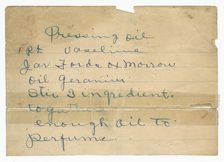 Pressing oil
pt vaseline
Jar Fords ox Marrow
oil geranium
Stir 3 ingredient.
together
enough oil to
perfume